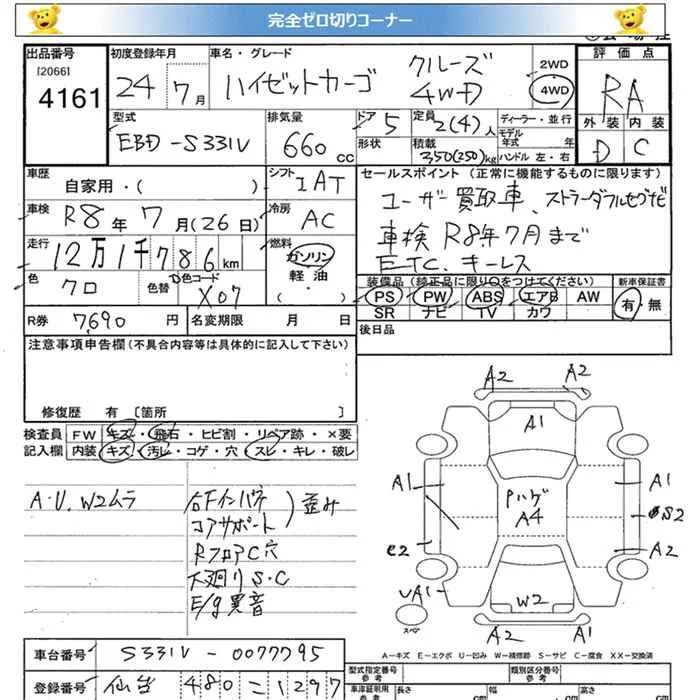 完全ゼロ切りコーナー
出品番号 初度登録年月 車名・グレード 評価点
[2066]
4161 24年7月 ハイゼットカーゴ クルーズ 4WD 2WD 4WD RA
型式 排気量 ドア 定員 ディーラー・並行 外装 内装
EBD-S331V 660cc 5 2(4)人 モデル年式 年 D C
形状 積載 350(250)kg ハンドル 左・右
車歴 自家用・( ) シフト IAT セールスポイント (正常に機能するものに限ります)
ユーザー買取車、ストラーダフルセグナビ
車検 R8年7月(26日) 冷房 AC 車検 R8年7月まで
走行 12万1千786km 燃料 ガソリン 軽油 ・( ) ETC、キーレス
色 クロ 色替 色コード X07 装備品 (純正品に限り○をつけてください) 新車保証書
PS PW ABS エアB AW 有・無
SR ナビ TV カワ
R券 7690円 名変期限 月 日 後日品
注意事項申告欄 (不具合内容等は具体的に記入して下さい)
修復歴 有 〔箇所 〕
検査員 FW キズ・飛石・ヒビ割・リペア跡・×要
記入欄 内装 キズ・汚レ・コゲ・穴・スレ・キレ・破レ
A・U、W2ムラ
右Fインパネ
コアサポート
歪み
RフロアC穴
下廻りS・C
E/g異音
A2 A2
A1
A1 Pハゲ A4 A1
S2
C2 A2
UA1 W2
スペア A2 A1
A-キズ E-エクボ U-凹み W-補修跡 S-サビ C-腐食 XX-交換済
車台番号 S331V-0077795
登録番号 仙台 480 ニ 1297
型式指定番号 類別区分番号
車庫証明用参考 長さ 幅 高さ